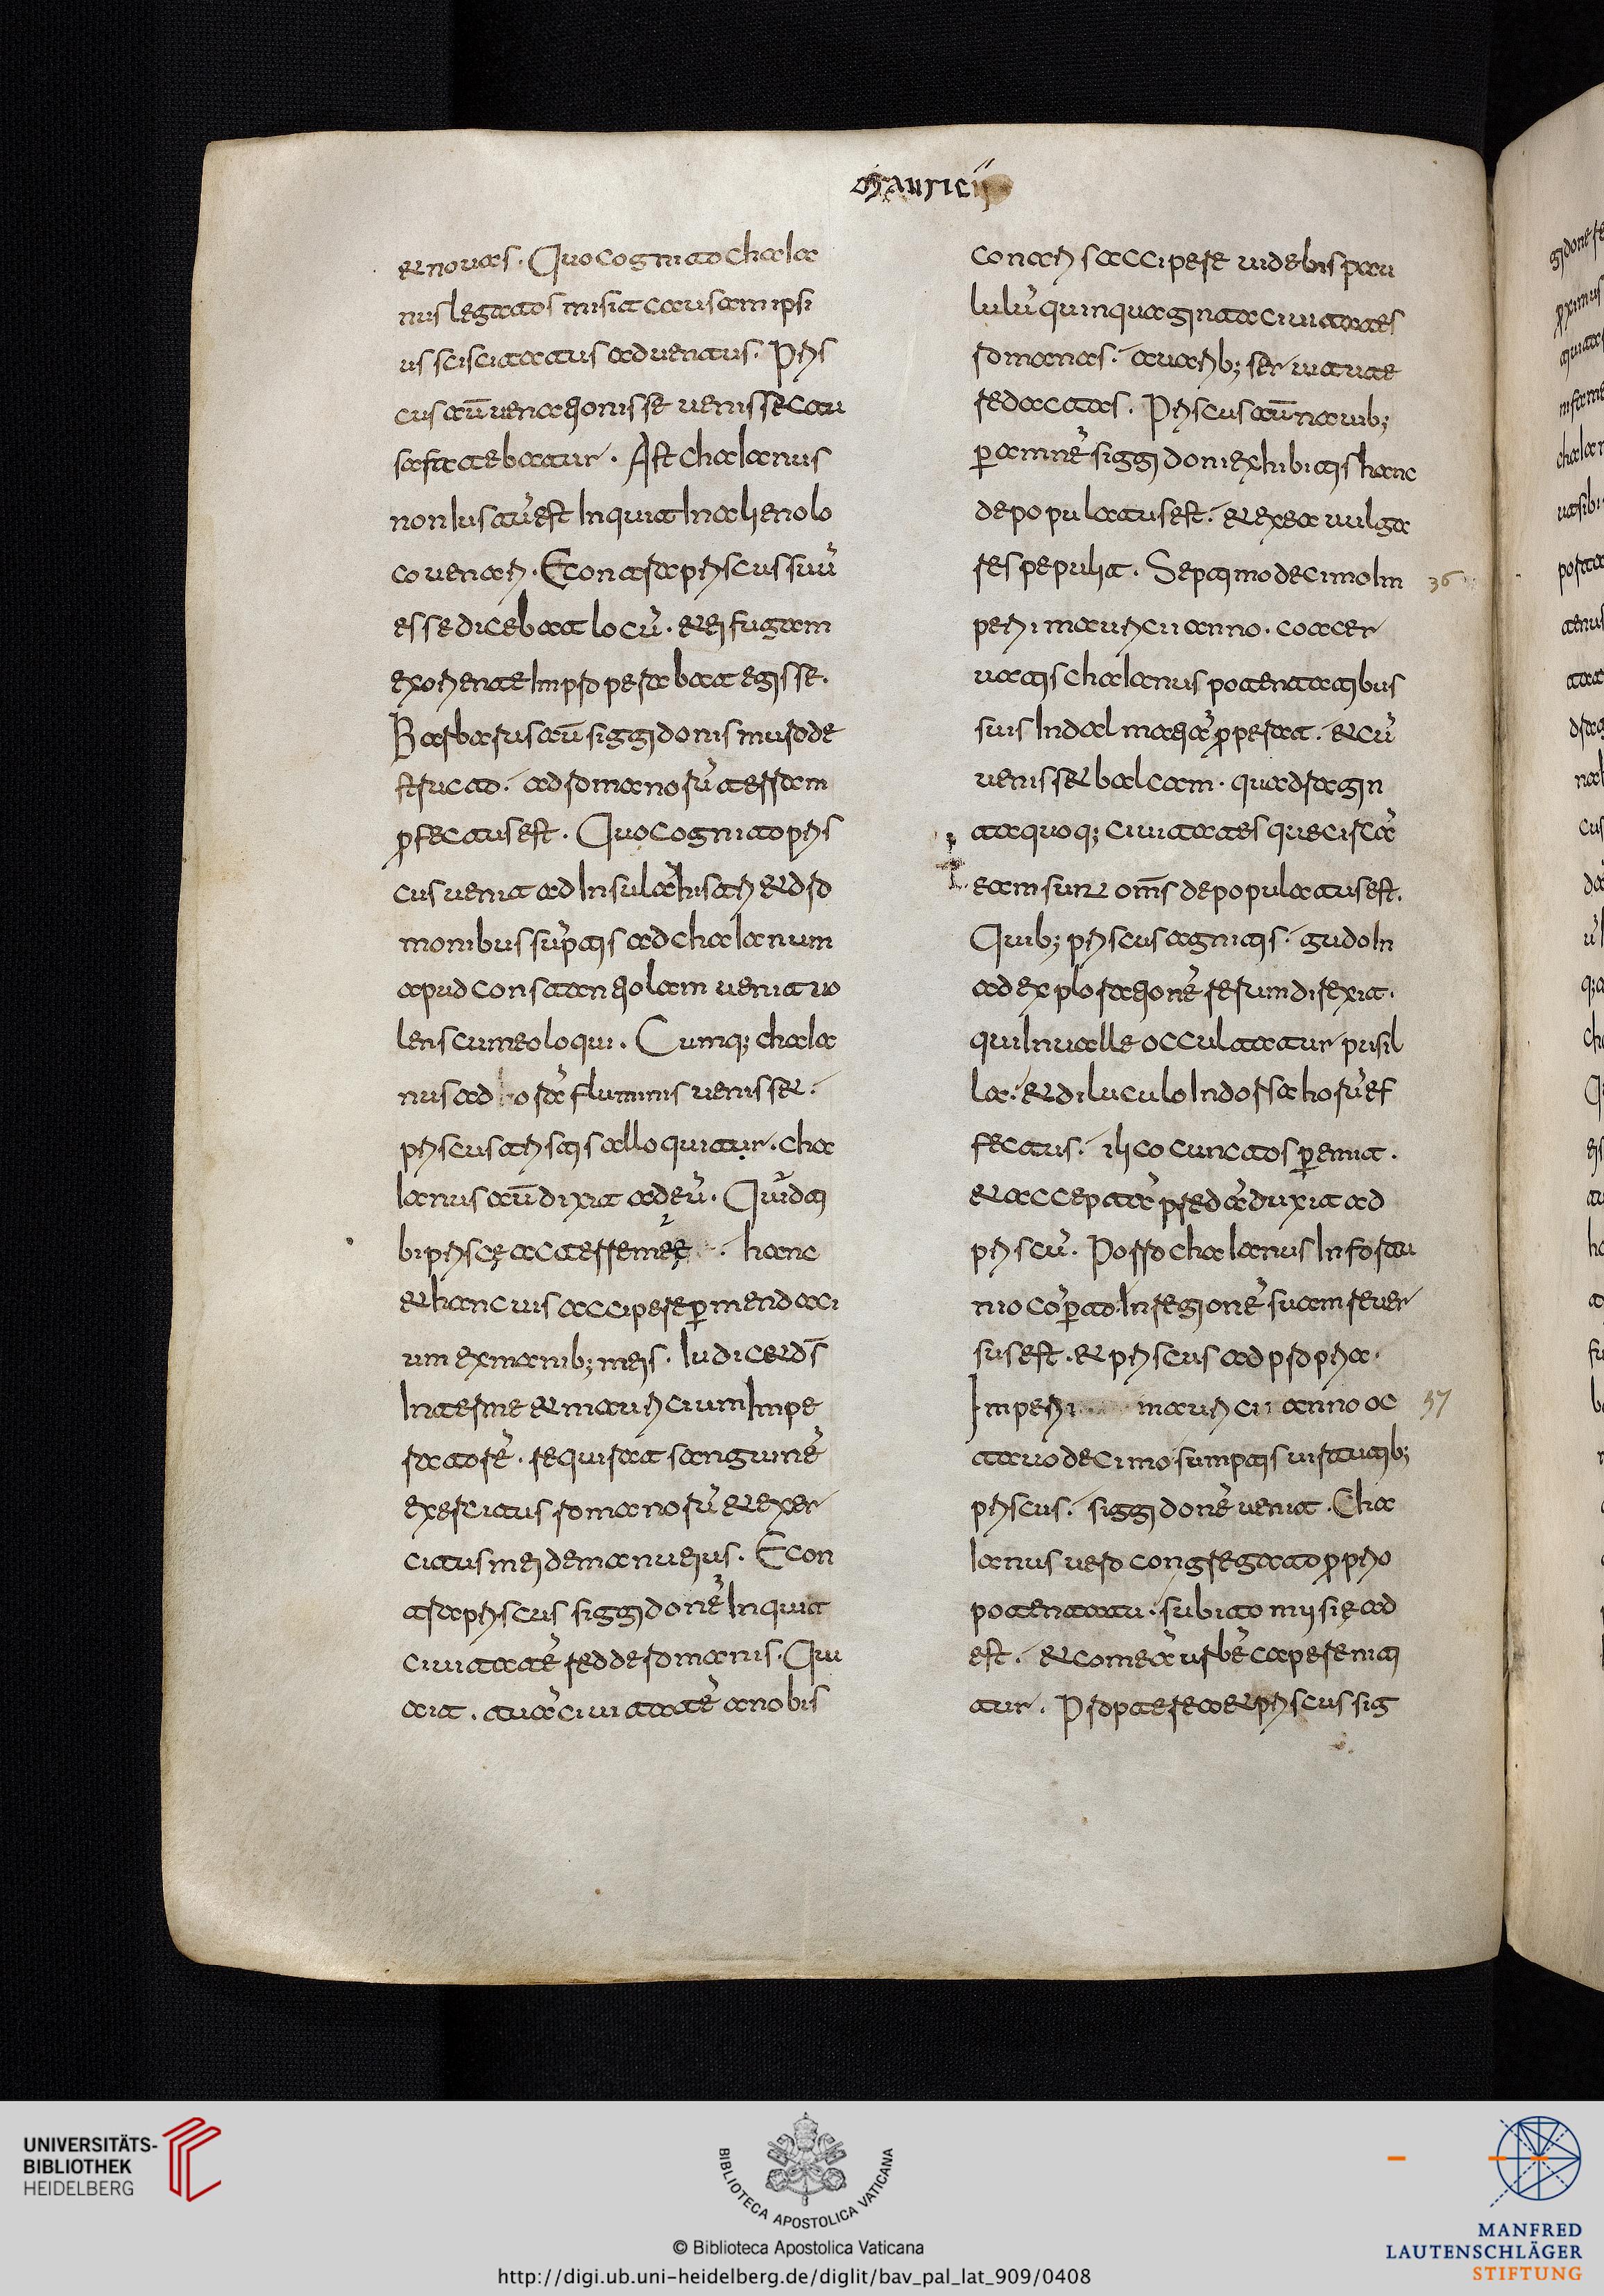 Mauricii
et novas. Quo cognito chaia
nus legatos misit causam ipsi
us sciscitatus adventus. Pris
cus aut̄ venationis se venisse cau
sa fatebatur. Ast chaianus
non iustū est inquit in alieno lo
co venari. Econtra priscus suū
esse dicebat locū. et ei fugam
ex oriente impropexabat egisse.
Barbarus aut̄ siggidonis muro de
structo. ad romanorū terram
ꝓfectus est. Quo cognito pris
cus venit ad insulā histri et dro
monibus sūptis ad chaianum
apud constantiolam venit vo
lens cum eo loqui. Cumq; chaia
nus ad orā fluminis venisset.
priscus tristis alloquitur. cha
ianus aut̄ dixit ad eū. Quid ti
bi prisce ac terre meę. hanc
et hanc vis accipere ꝑ mendaci
um ex manib; meis. Iudicet ds̄
inter me et mauricium impe
ratorē. requirat sanguinē
exercitus romanorū et exer
citus mei de manu eius. Econ
tra priscus siggidonē inquit
civitatē redde romanis. Qui
ait. tuā civitatē a nobis
conaris accipere videbis parv
lulū quinquaginta civitates
romanas. avarib; servitute
redactas. Priscus aut̄ navib;
ꝑ amnē siggidoni exhibitis hanc
depopulatus est. et ex ea vulga
res pepulit. Septimodecimo im 36
perii mauricii anno. coacer
vatis chaianus potentatibus
suis in dalmatiā ꝓperat. et cū
venisset balcam. quadragin
ta quoq; civitates que circā
eam sunt oms̄ depopulatus est.
Quib; priscus agnitis. gudoin
ad explorationē rerum direxit.
qui in valle occultatur pusil
la. et diluculo in dorsa horū ef
fectus. ilico cunctos ꝑemit.
et acceptā predā duxit ad
priscū. Porro chaianus infortu
nio cōperto in regionē suam rever
sus est. et priscus ad propria.
Imperii mauricii anno oc 37
tavodecimo sumptis virtutib;
priscus. siggidonē venit. Cha
ianus vero congregato ꝓprio
potentatu. subito mysię ad
est. et comeā urbē capere niti
tur. Propterea et priscus sig
UNIVERSITÄTS-
BIBLIOTHEK
HEIDELBERG
BIBLIOTECA APOSTOLICA VATICANA
© Biblioteca Apostolica Vaticana
http://digi.ub.uni-heidelberg.de/diglit/bav_pal_lat_909/0408
MANFRED
LAUTENSCHLÄGER
STIFTUNG